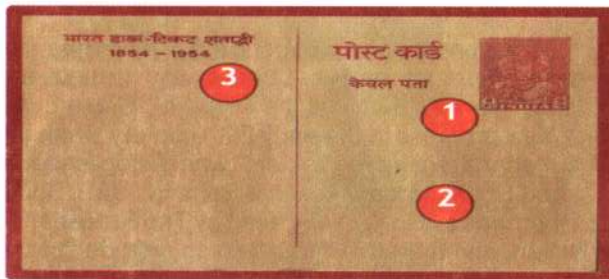 भारत डाक-टिकट शताब्दी
1854 – 1954
3
पोस्ट कार्ड
केवल पता
1
2